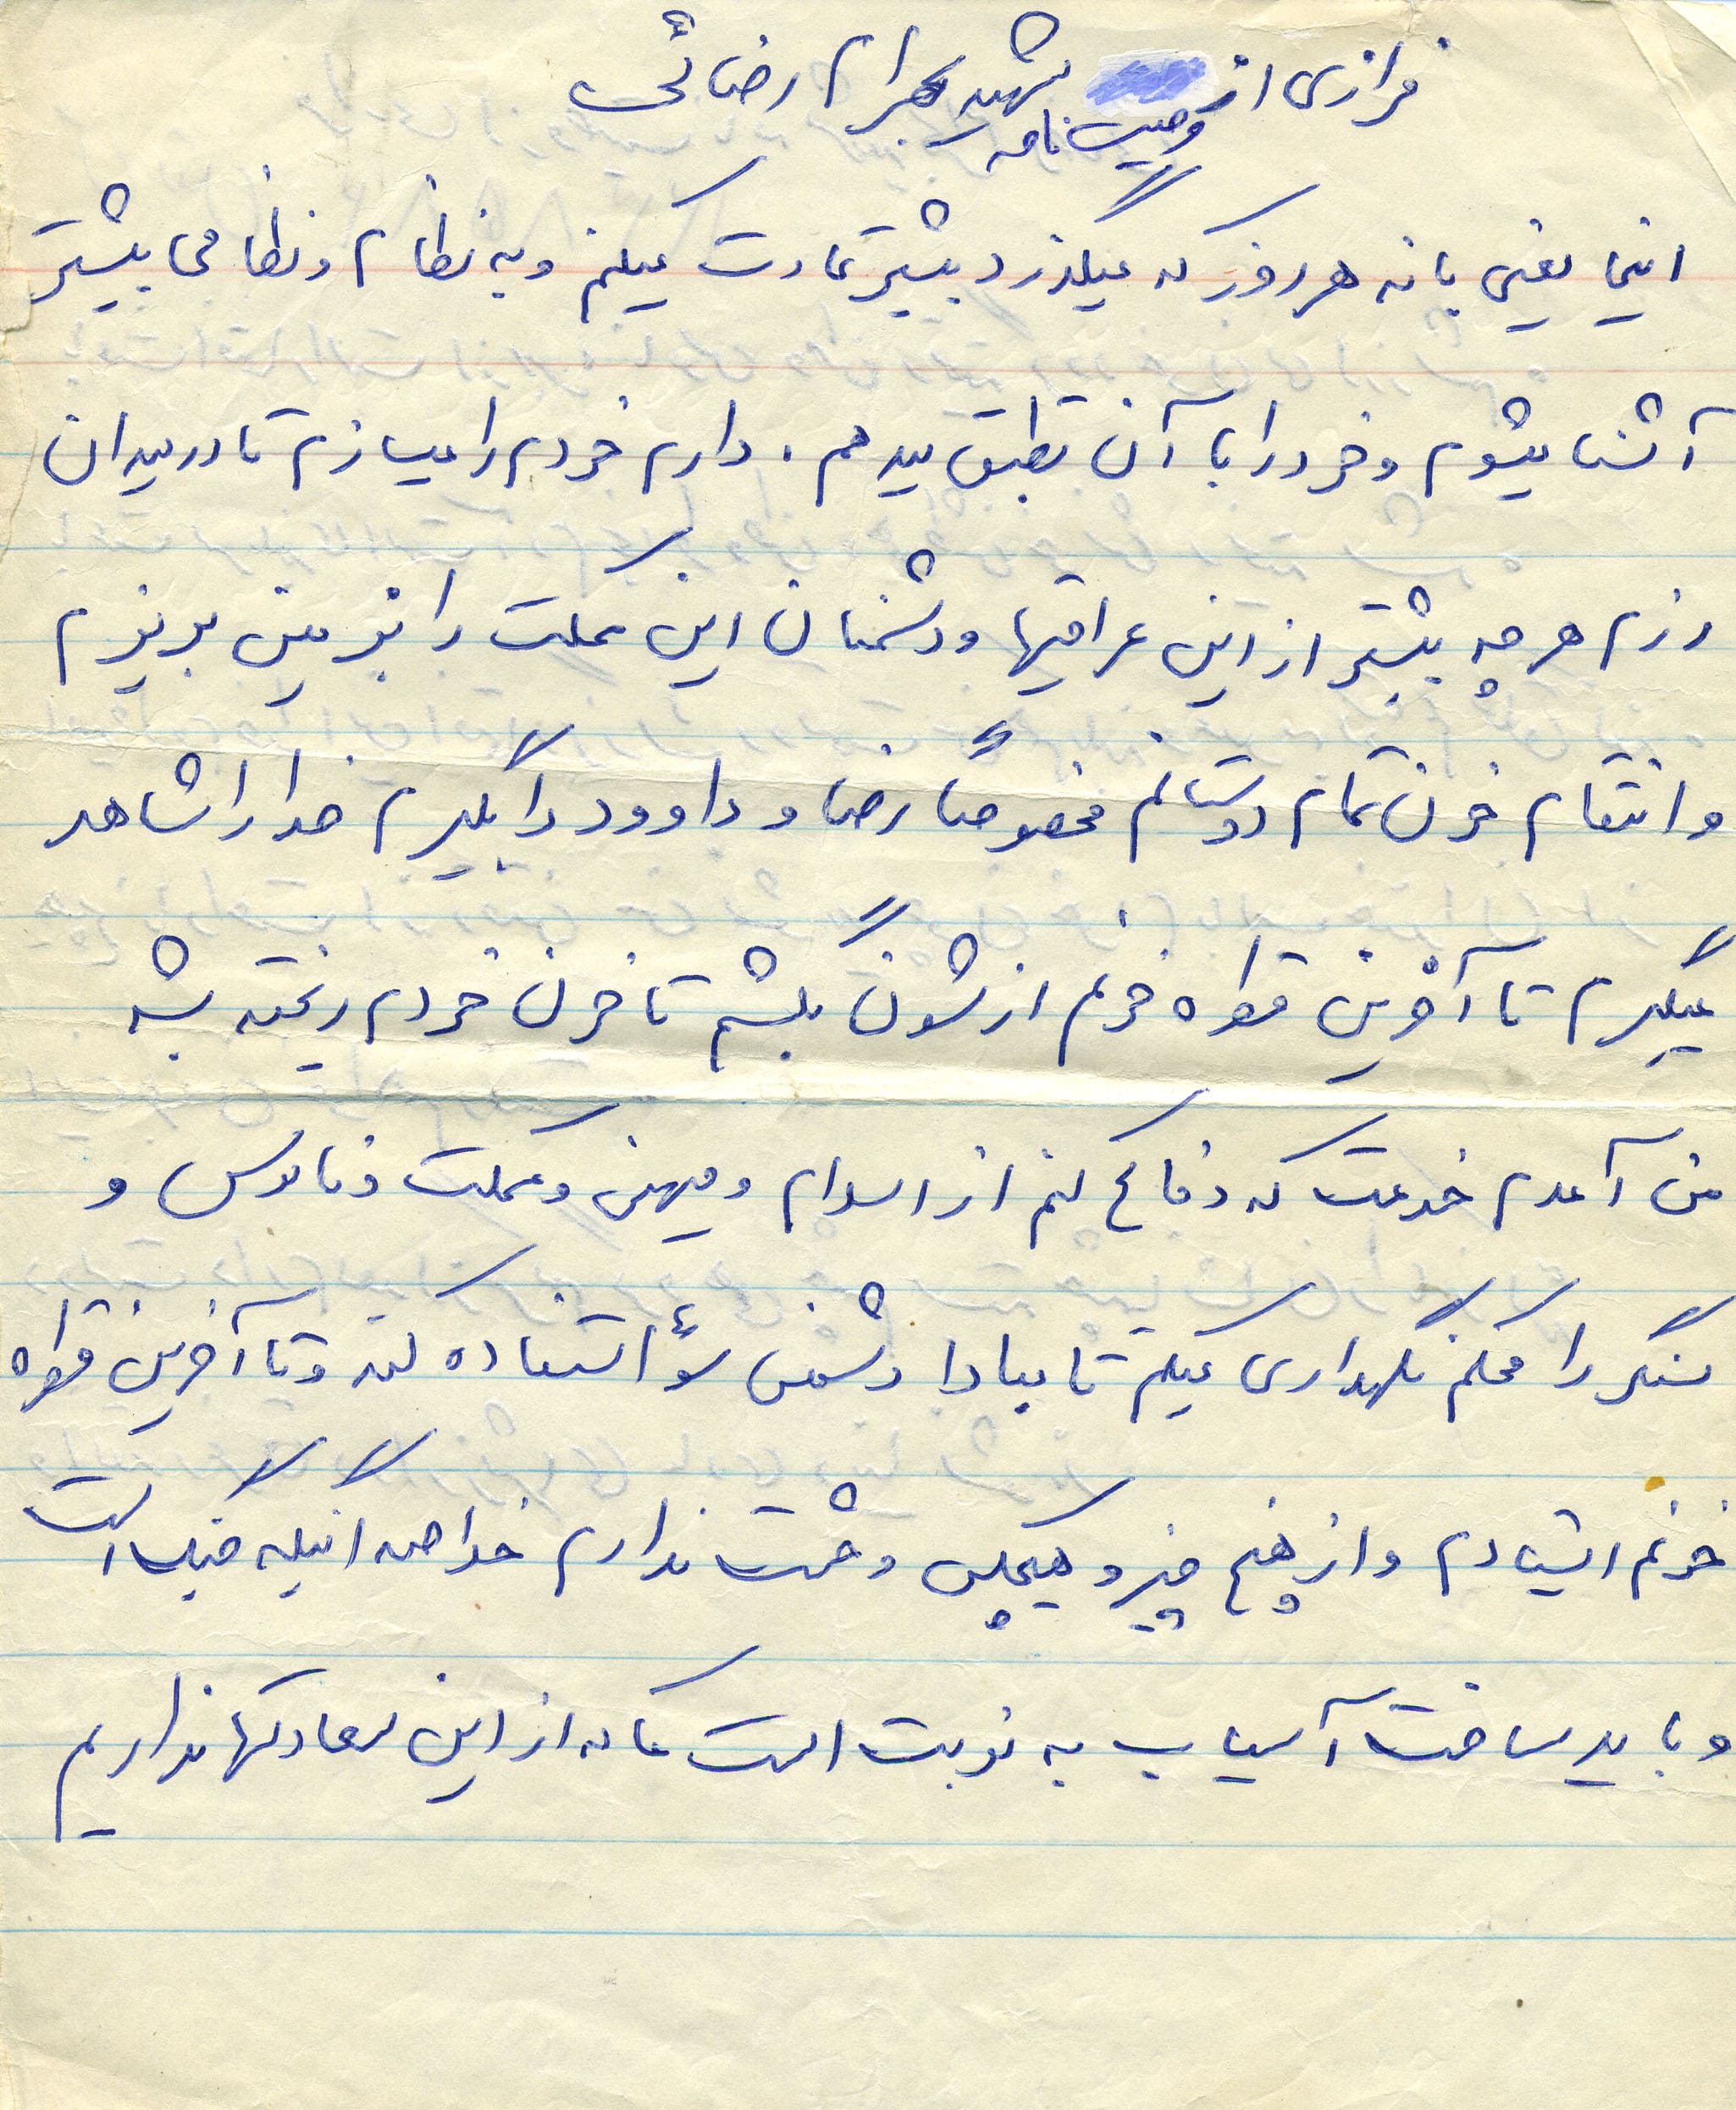 فرازی از وصیت نامه شهید بهرام رضائی
اینجا یعنی بانه هر روز که میگذرد بیشتر عادت میکنم و به نظام و نظامی بیشتر
آشنا میشوم و خود را با آن تطبیق میدهم . دارم خودم را میسازم تا در میدان
رزم هر چه بیشتر از این عراقیها و دشمنان این مملکت را بزمین بریزم
و انتقام خون تمام دوستانم مخصوصاً رضا و داوود را بگیرم خدا را شاهد
میگیرم تا آخرین قطره خونم ازشون بکشم تا خون خودم ریخته بشه
من آمدم خدمت که دفاع کنم از اسلام و میهن و مملکت و ناموس و
سنگر را محکم نگهداری میکنم تا مبادا دشمن سوء استفاده کند و تا آخرین قطره
خونم ایستادم و از هیچ چیز و هیچکس وحشت ندارم خلاصه اینکه جنگ است
و باید ساخت آسیاب به نوبت است ما که از این سعادتها نداریم